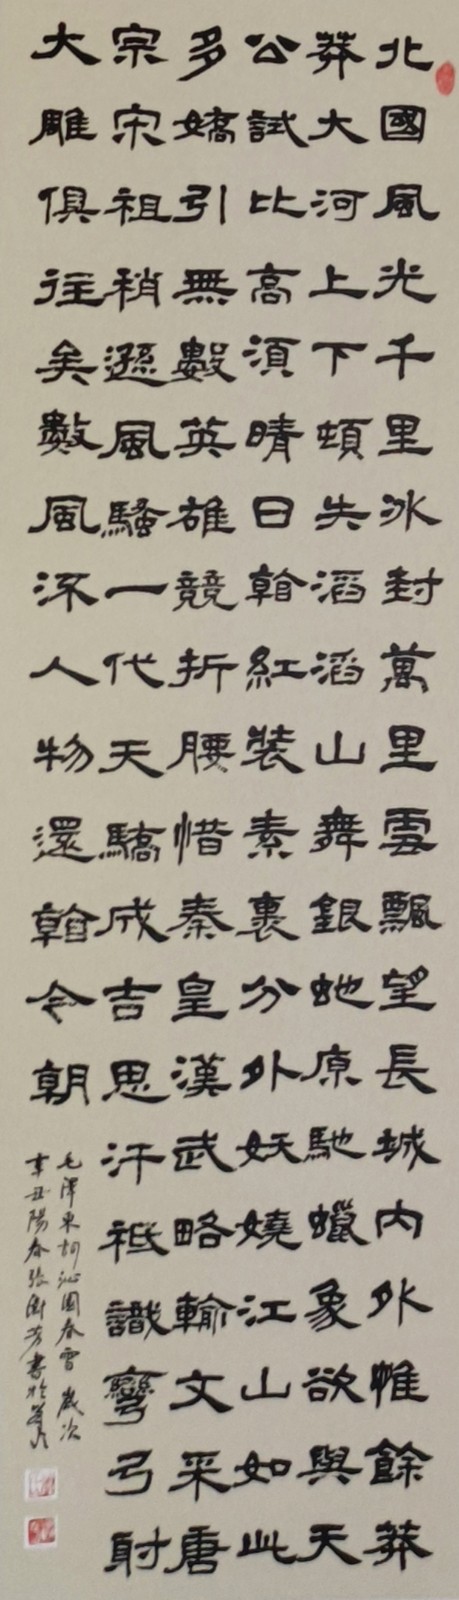 北國風光千里冰封萬里雲飄望長城内外惟餘莽
莽大河上下頓失滔滔山舞銀虵原馳蠟象欲與天
公試比高須晴日看紅裝素裹分外妖嬈江山如此
多嬌引無數英雄競折腰惜秦皇漢武略輸文采唐
宗宋祖稍遜風騷一代天驕成吉思汗祗識彎弓射
大雕俱往矣數風流人物還看今朝
毛澤東詞沁園春雪歲次
辛丑陽春張衛芳書於